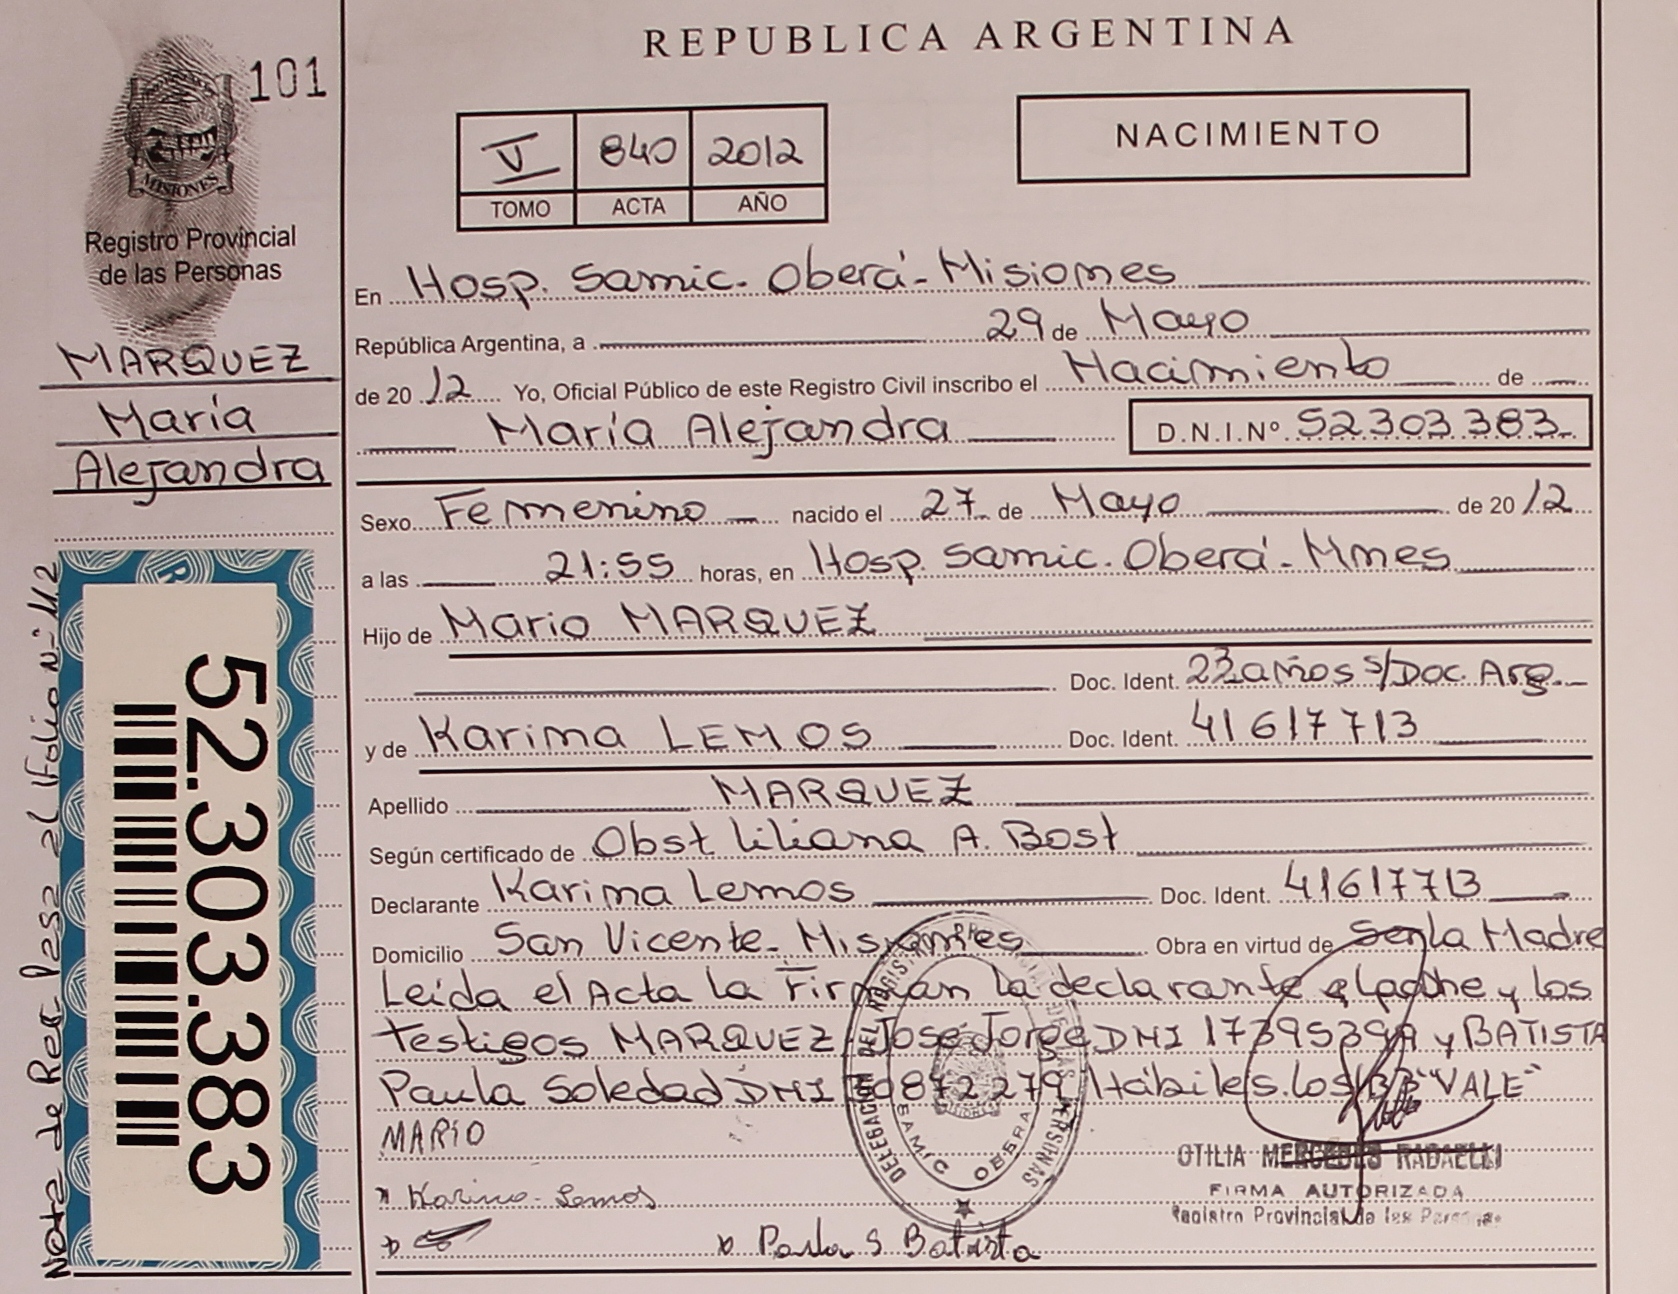 REPUBLICA ARGENTINA
101
MISIONES
Registro Provincial
de las Personas
MARQUEZ
María
Alejandra
52.303.383
V 840 2012
TOMO ACTA AÑO
NACIMIENTO
En Hosp. Samic. Oberá - Misiones
República Argentina, a 29 de Mayo
de 2012 Yo, Oficial Público de este Registro Civil inscribo el Nacimiento de
María Alejandra D.N.I.Nº 52303383
Sexo Femenino nacido el 27 de Mayo de 2012
a las 21:55 horas, en Hosp. Samic. Oberá - Mnes
Hijo de Mario MARQUEZ
Doc. Ident. 23 años s/Doc. Arg.
y de Karina LEMOS Doc. Ident. 41617713
Apellido MARQUEZ
Según certificado de Obst Liliana A. Bost
Declarante Karina Lemos Doc. Ident. 41617713
Domicilio San Vicente - Misiones Obra en virtud de Ser la Madre
Leída el Acta la Firman la declarante y los
testigos MARQUEZ José Jorge DNI y BATISTA
Paula Soledad DNI Hábiles. "VALE"
MARIO
Karina Lemos
Paula S. Batista
SAMIC OBERA
OTILIA MERCEDES RADAELLI
FIRMA AUTORIZADA
Registro Provincial de las Personas